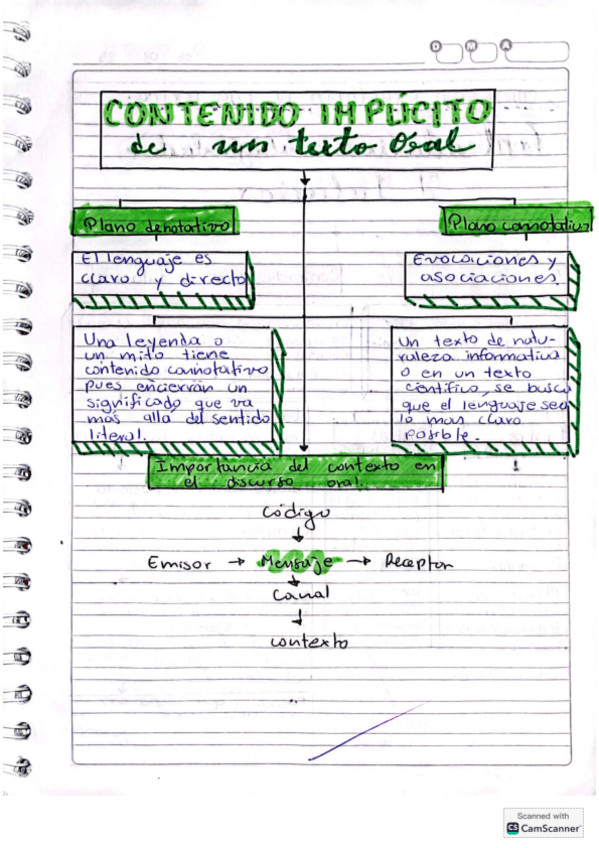 D M A
CONTENIDO IMPLÍCITO
de un texto Oral
Plano denotativo
Plano connotativo
El lenguaje es
claro y directo
Evocaciones y
asociaciones.
Una leyenda o
un mito tiene
contenido connotativo
pues encierran un
significado que va
más allá del sentido
literal.
Un texto de natu-
raleza informativa
o en un texto
científico, se busca
que el lenguaje sea
lo mas claro
posible.
Importancia del contexto en
el discurso oral.
Código
Emisor → Mensaje → Receptor
Canal
contexto
Scanned with
CS CamScanner